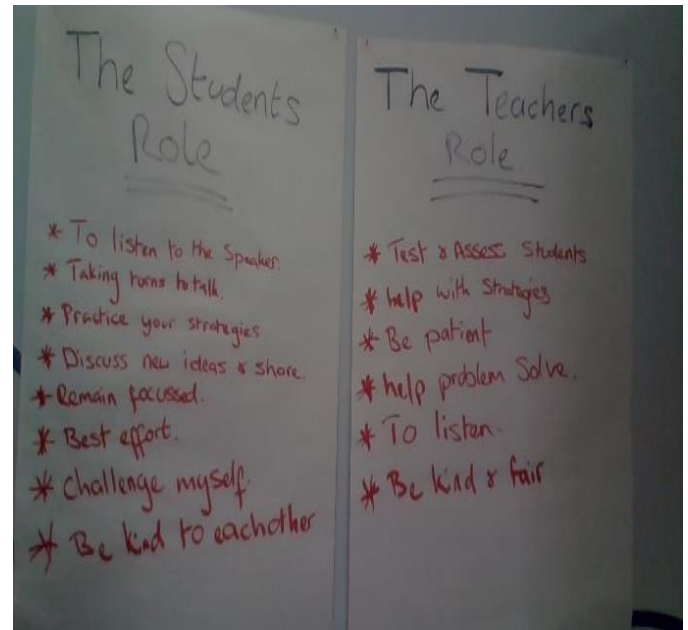 The Students
Role
* To listen to the Speaker.
* Taking turns to talk.
* Practice your strategies
* Discuss new ideas & share.
* Remain focussed.
* Best effort.
* Challenge myself.
* Be kind to eachother
The Teachers
Role
* Test & Assess Students
* help with Strategies
* Be patient
* help problem Solve.
* To listen.
* Be kind & fair